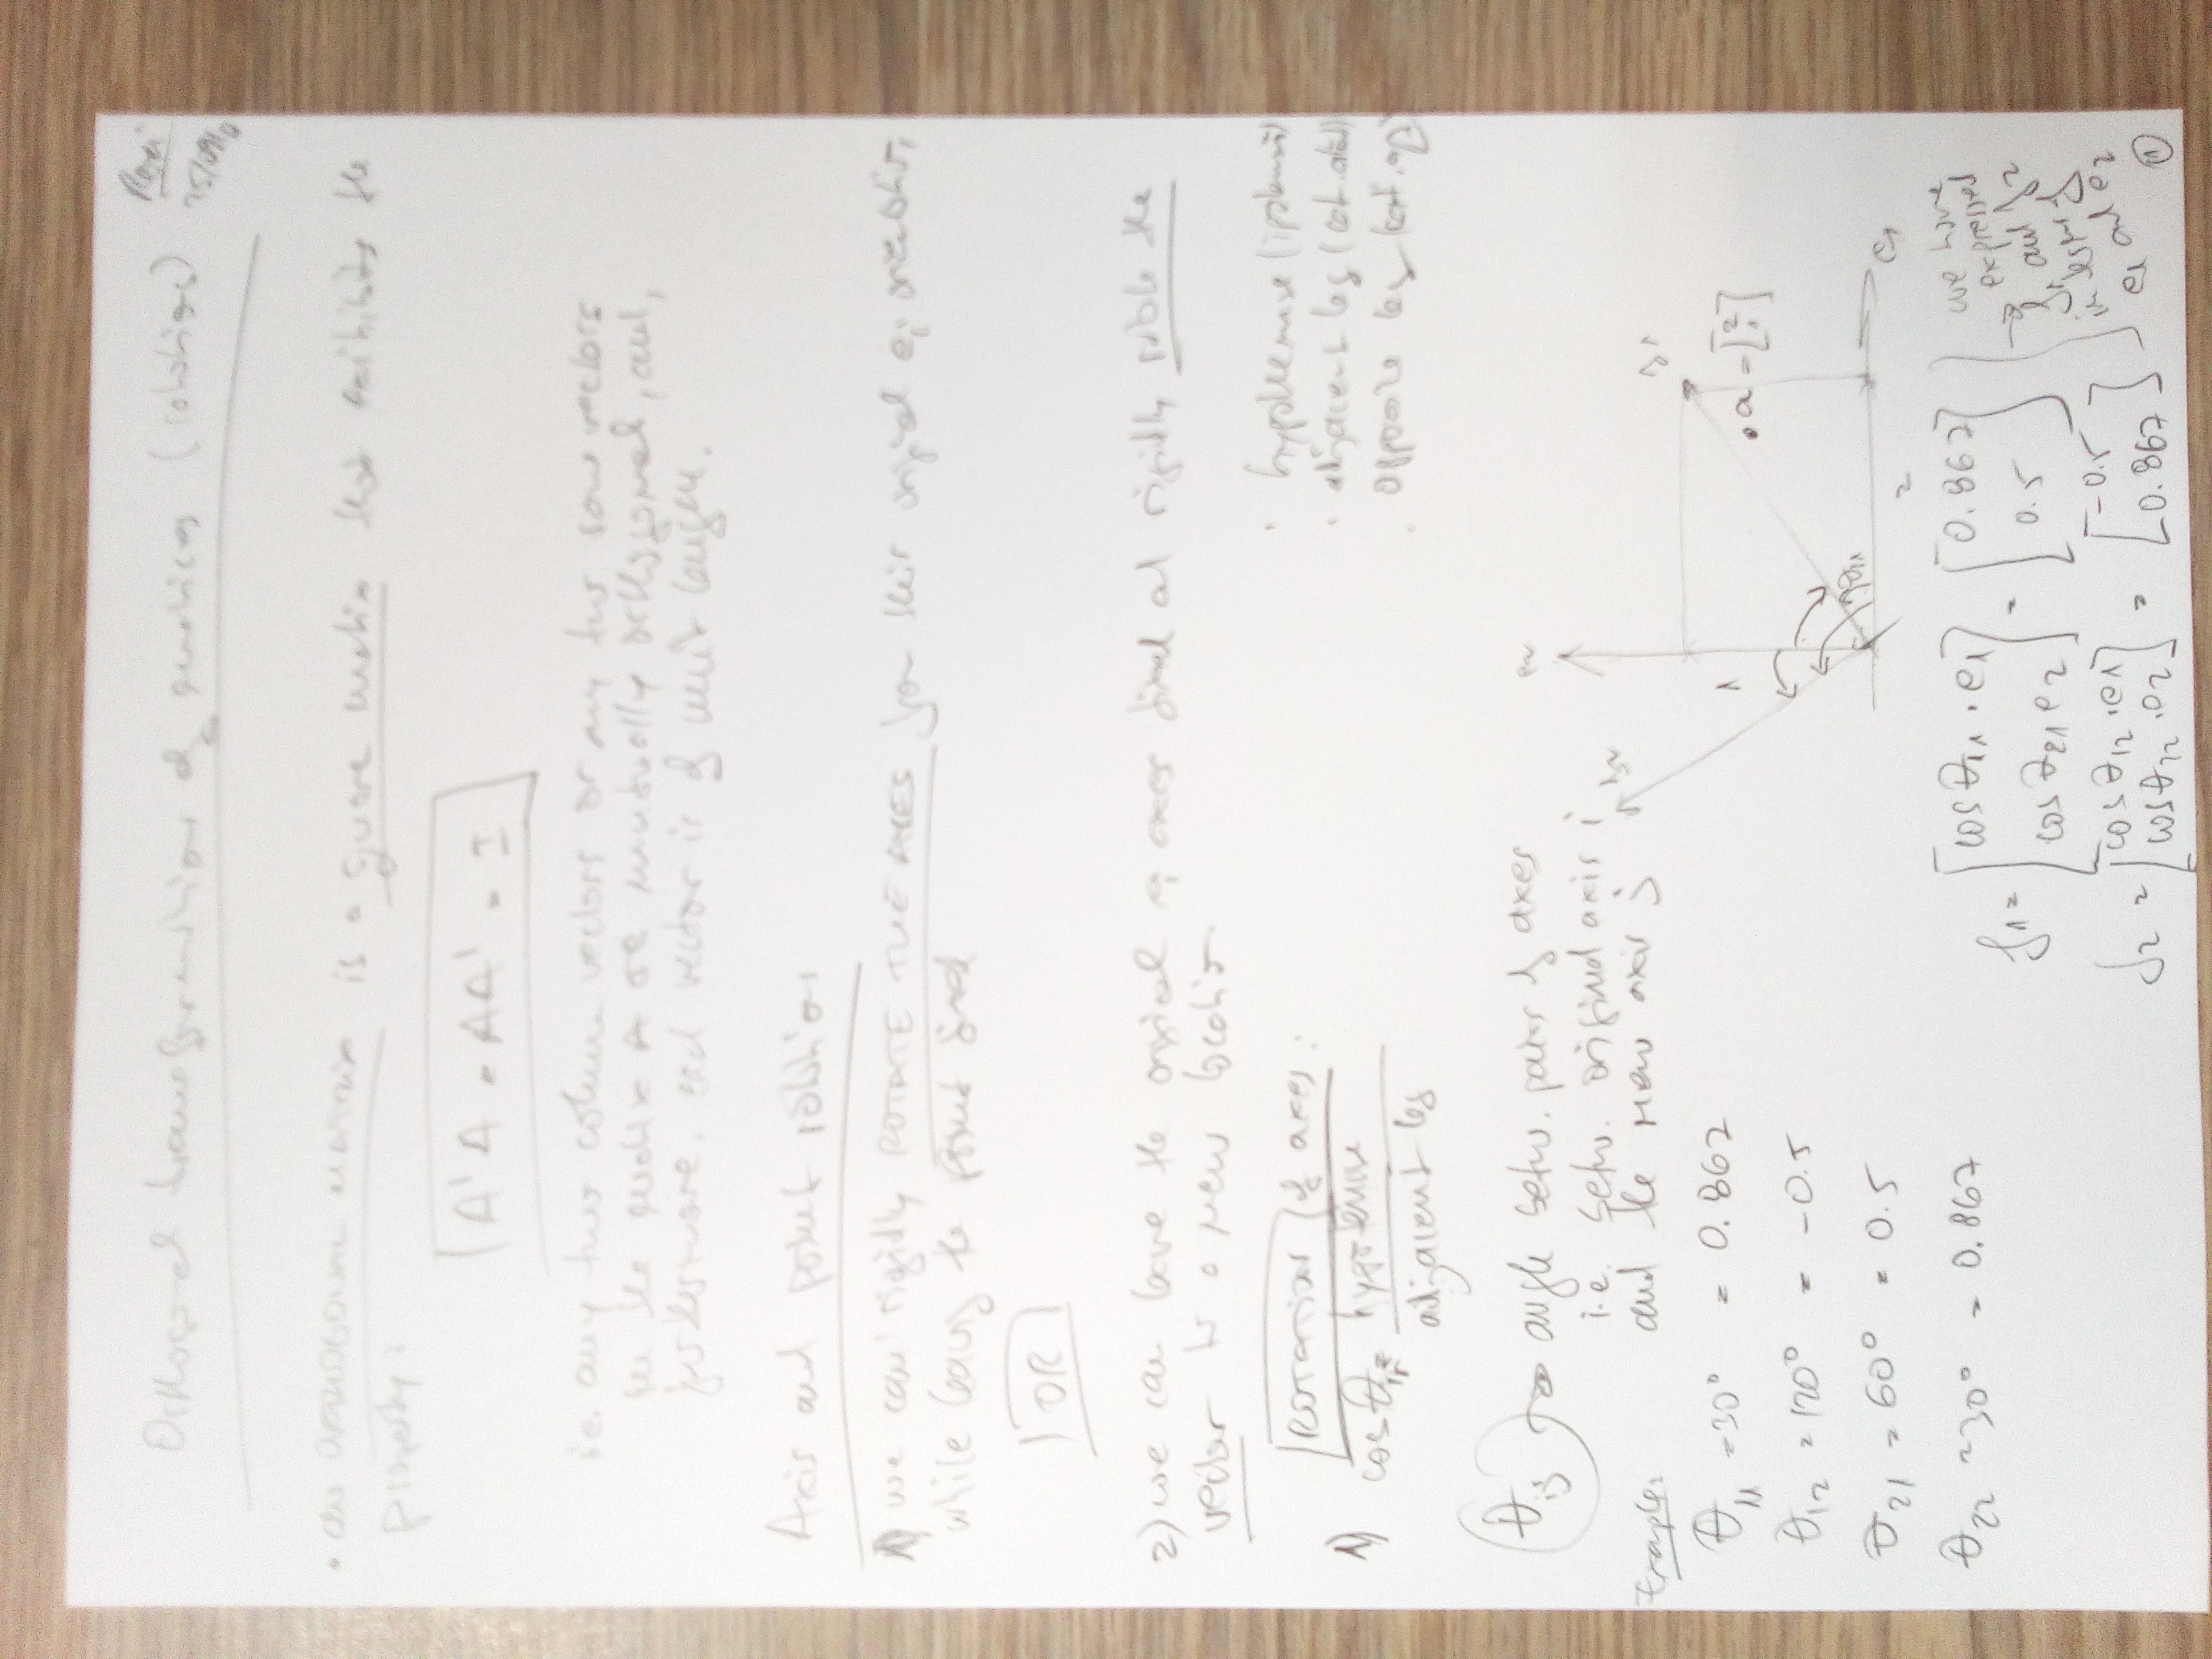 Orthogonal transformations of matrices (rotations)
• an orthogonal matrix is a square matrix that exhibits the
property:
A'A = AA' = I
i.e. any two column vectors or any two row vectors
in the matrix A are mutually orthogonal, and,
furthermore, each vector is of unit length.
Axis and point rotation
1) we can rigidly ROTATE THE AXES from their original ei orientation,
while leaving the point fixed
OR
2) we can leave the original ei axes fixed and rigidly rotate the
vector to a new location.
ROTATION of axes:
• hypotenuse
• adjacent leg
• opposite leg
1) cos θ11 = hypotenuse
adjacent leg
θij → angle betw. pairs of axes
i.e. betw. original axis i
and the new axis j
Example:
θ11 = 30° = 0.867
θ12 = 120° = -0.5
θ21 = 60° = 0.5
θ22 = 30° = 0.867
e2
f2
f1
1
θ11
• a = [2 1]
2
e1
f1 = [cos θ11 . e1
cos θ21 e2] = [0.867
0.5]
f2 = [cos θ12 . e1
cos θ12 . e2] = [-0.5
0.867]
we have
expressed
f1 and f2
in terms of
e1 and e2
1